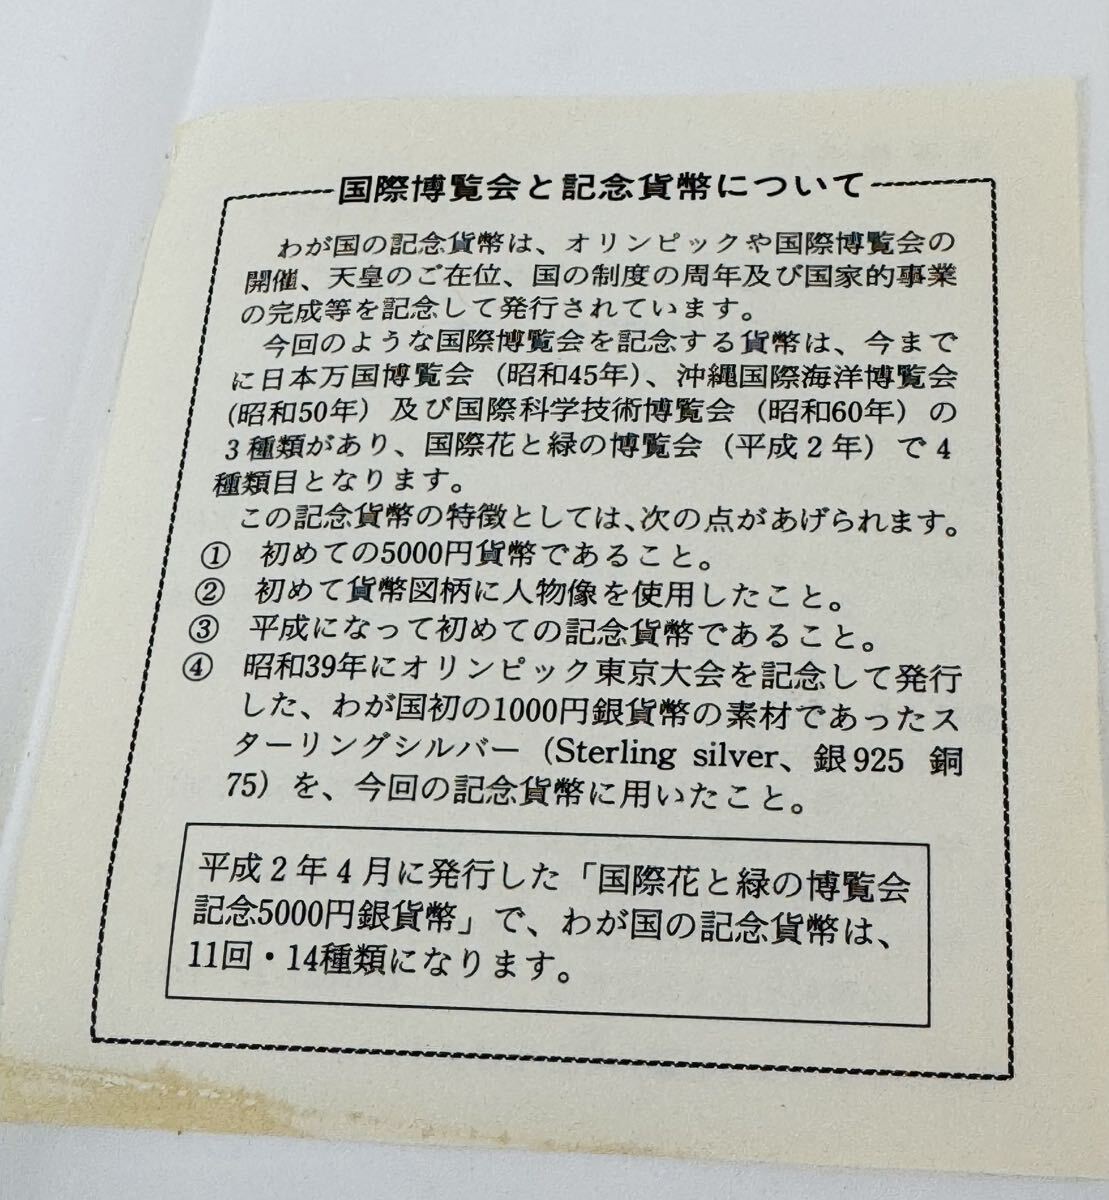 国際博覧会と記念貨幣について
わが国の記念貨幣は、オリンピックや国際博覧会の
開催、天皇のご在位、国の制度の周年及び国家的事業
の完成等を記念して発行されています。
今回のような国際博覧会を記念する貨幣は、今まで
に日本万国博覧会（昭和45年）、沖縄国際海洋博覧会
（昭和50年）及び国際科学技術博覧会（昭和60年）の
3種類があり、国際花と緑の博覧会（平成2年）で4
種類目となります。
この記念貨幣の特徴としては、次の点があげられます。
① 初めての5000円貨幣であること。
② 初めて貨幣図柄に人物像を使用したこと。
③ 平成になって初めての記念貨幣であること。
④ 昭和39年にオリンピック東京大会を記念して発行
した、わが国初の1000円銀貨幣の素材であったス
ターリングシルバー（Sterling silver、銀925 銅
75）を、今回の記念貨幣に用いたこと。
平成2年4月に発行した「国際花と緑の博覧会
記念5000円銀貨幣」で、わが国の記念貨幣は、
11回・14種類になります。